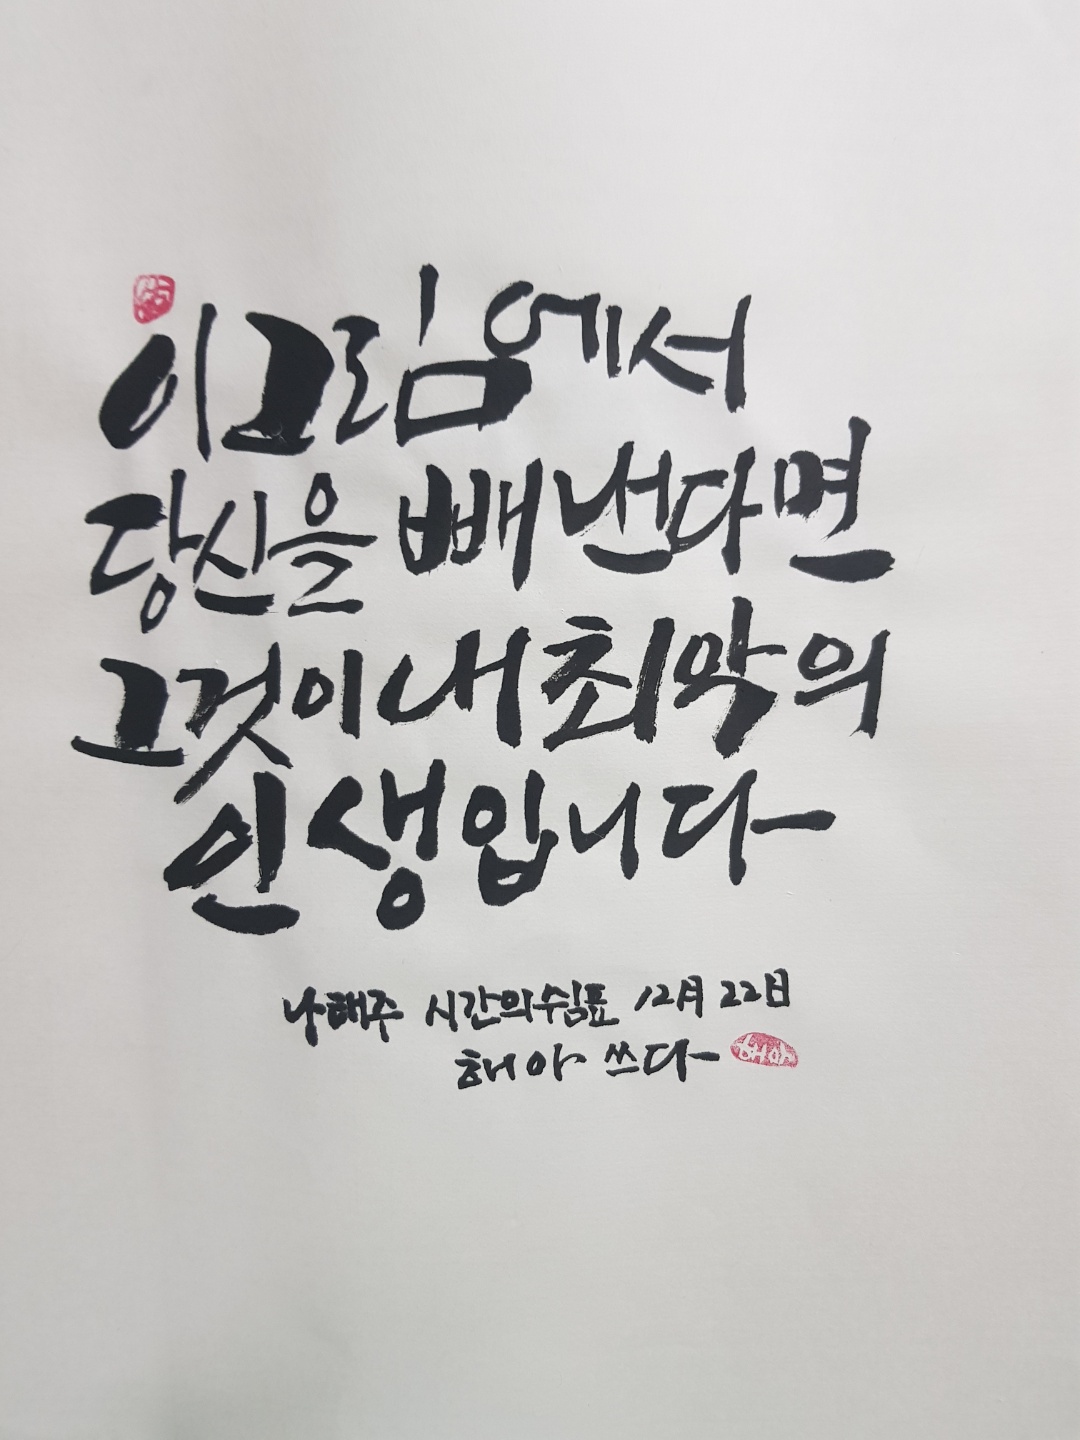 이 그림에서
당신을 빼낸다면
그것이 내 최악의
인생입니다
나태주 시간의쉼표 12月 22日
해아 쓰다
해아